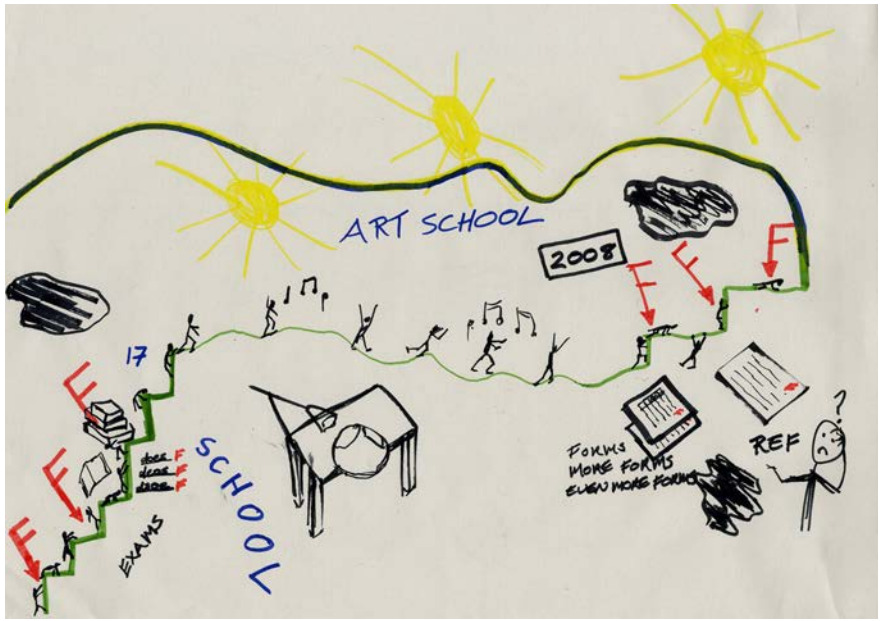 ART SCHOOL
2008
F
F
F
17
F
F
F
F
F
F
SCHOOL
EXAMS
FORMS
MORE FORMS
EVEN MORE FORMS
REF
?